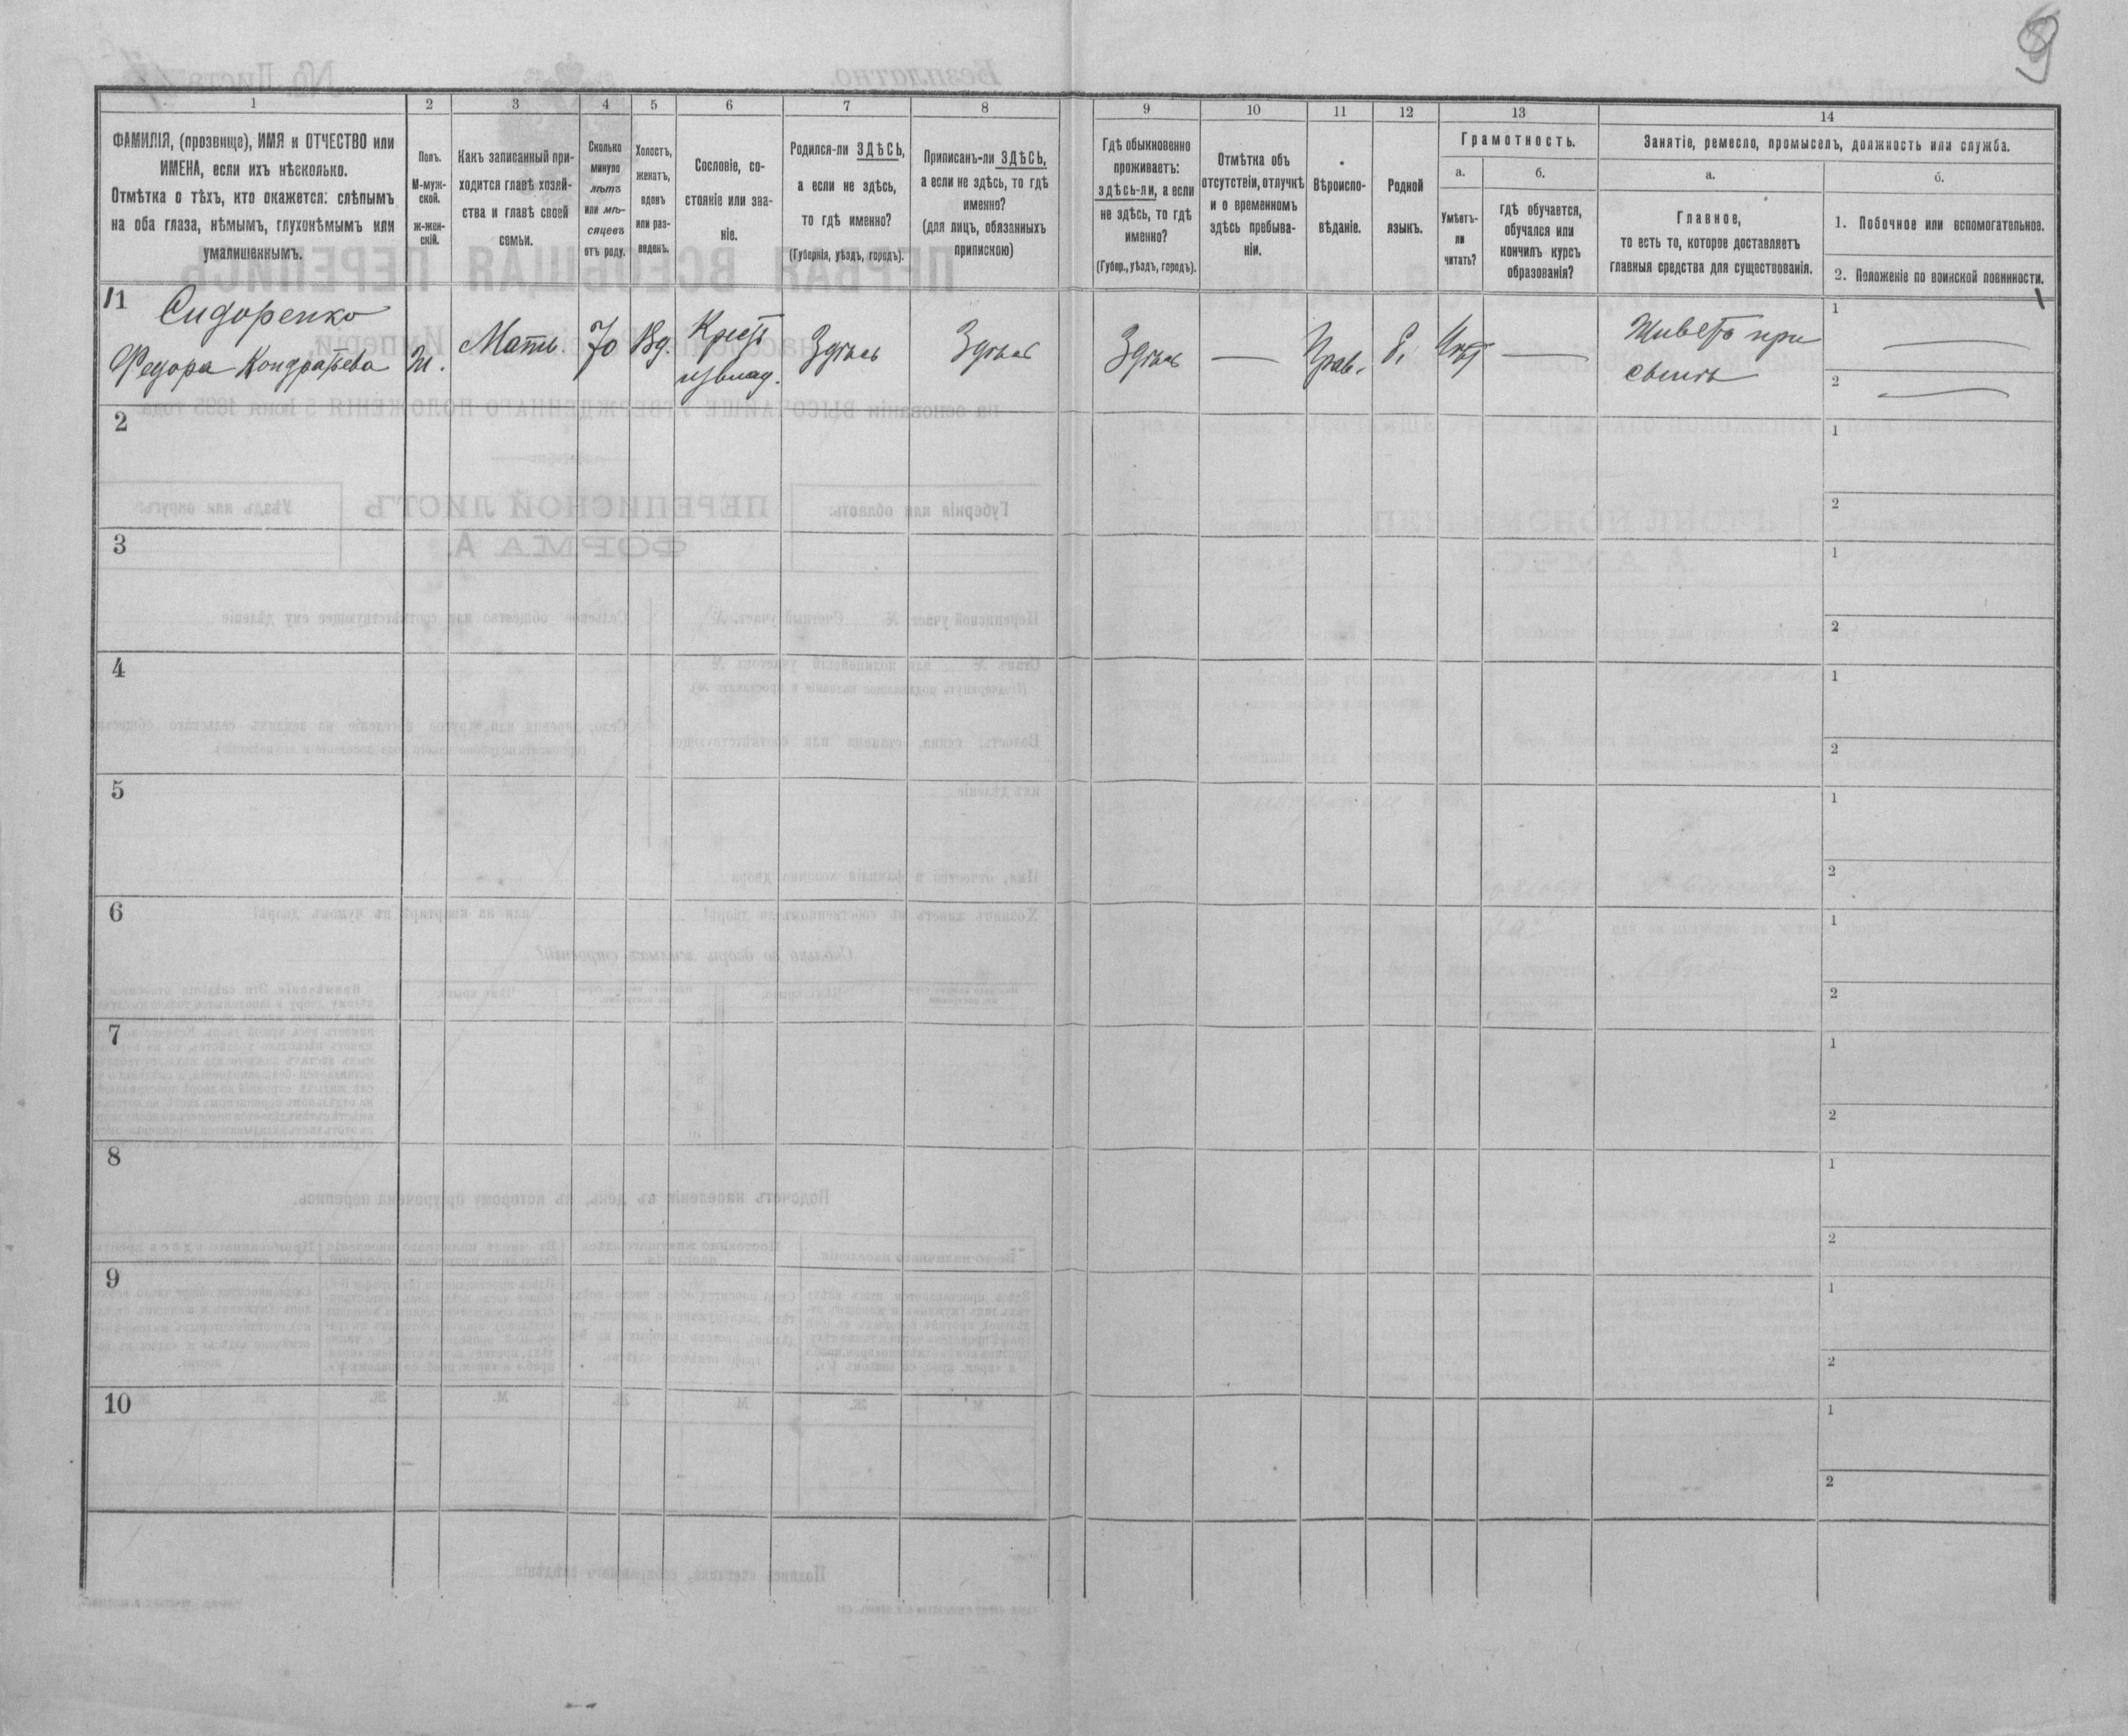 9
1
2
3
4
5
6
7
8
9
10
11
12
13
14
ФАМИЛІЯ, (прозвище), ИМЯ и ОТЧЕСТВО или
ИМЕНА, если ихъ нѣсколько.
Отмѣтка о тѣхъ, кто окажется: слѣпымъ
на оба глаза, нѣмымъ, глухонѣмымъ или
умалишеннымъ.
Полъ.
М-муж-
ской.
ж-жен-
скій.
Какъ записанный при-
ходится главѣ хозяй-
ства и главѣ своей
семьи.
Сколько
минуло
лѣтъ
или мѣ-
сяцевъ
отъ роду.
Холостъ,
женатъ,
вдовъ
или раз-
веденъ.
Сословіе, со-
стояніе или зва-
ніе.
Родился-ли ЗДѢСЬ,
а если не здѣсь,
то гдѣ именно?
(Губернія, уѣздъ, городъ).
Приписанъ-ли ЗДѢСЬ,
а если не здѣсь, то гдѣ
именно?
(для лицъ, обязанныхъ
припискою)
Гдѣ обыкновенно
проживаетъ:
здѣсь-ли, а если
не здѣсь, то гдѣ
именно?
(Губер., уѣздъ, городъ).
Отмѣтка объ
отсутствіи, отлучкѣ
и о временномъ
здѣсь пребыва-
ніи.
Вѣроиспо-
вѣданіе.
Родной
языкъ.
Грамотность.
а.
Умѣетъ-
ли
читать?
б.
гдѣ обучается,
обучался или
кончилъ курсъ
образованія?
Занятіе, ремесло, промыселъ, должность или служба.
а.
Главное,
то есть то, которое доставляетъ
главныя средства для существованія.
б.
1. Побочное или вспомогательное.
2. Положеніе по воинской повинности.
11
Сидоренко
Федора Кондратьева
Ж.
Мать.
70
Вд.
Крест
изъ влад.
Здѣсь
Здѣсь
Здѣсь
—
Прав.
Нѣт
—
Живетъ при
сынѣ
1
—
2
—
2
1
2
3
1
2
4
1
2
5
1
2
6
1
2
7
1
2
8
1
2
9
1
2
10
1
2